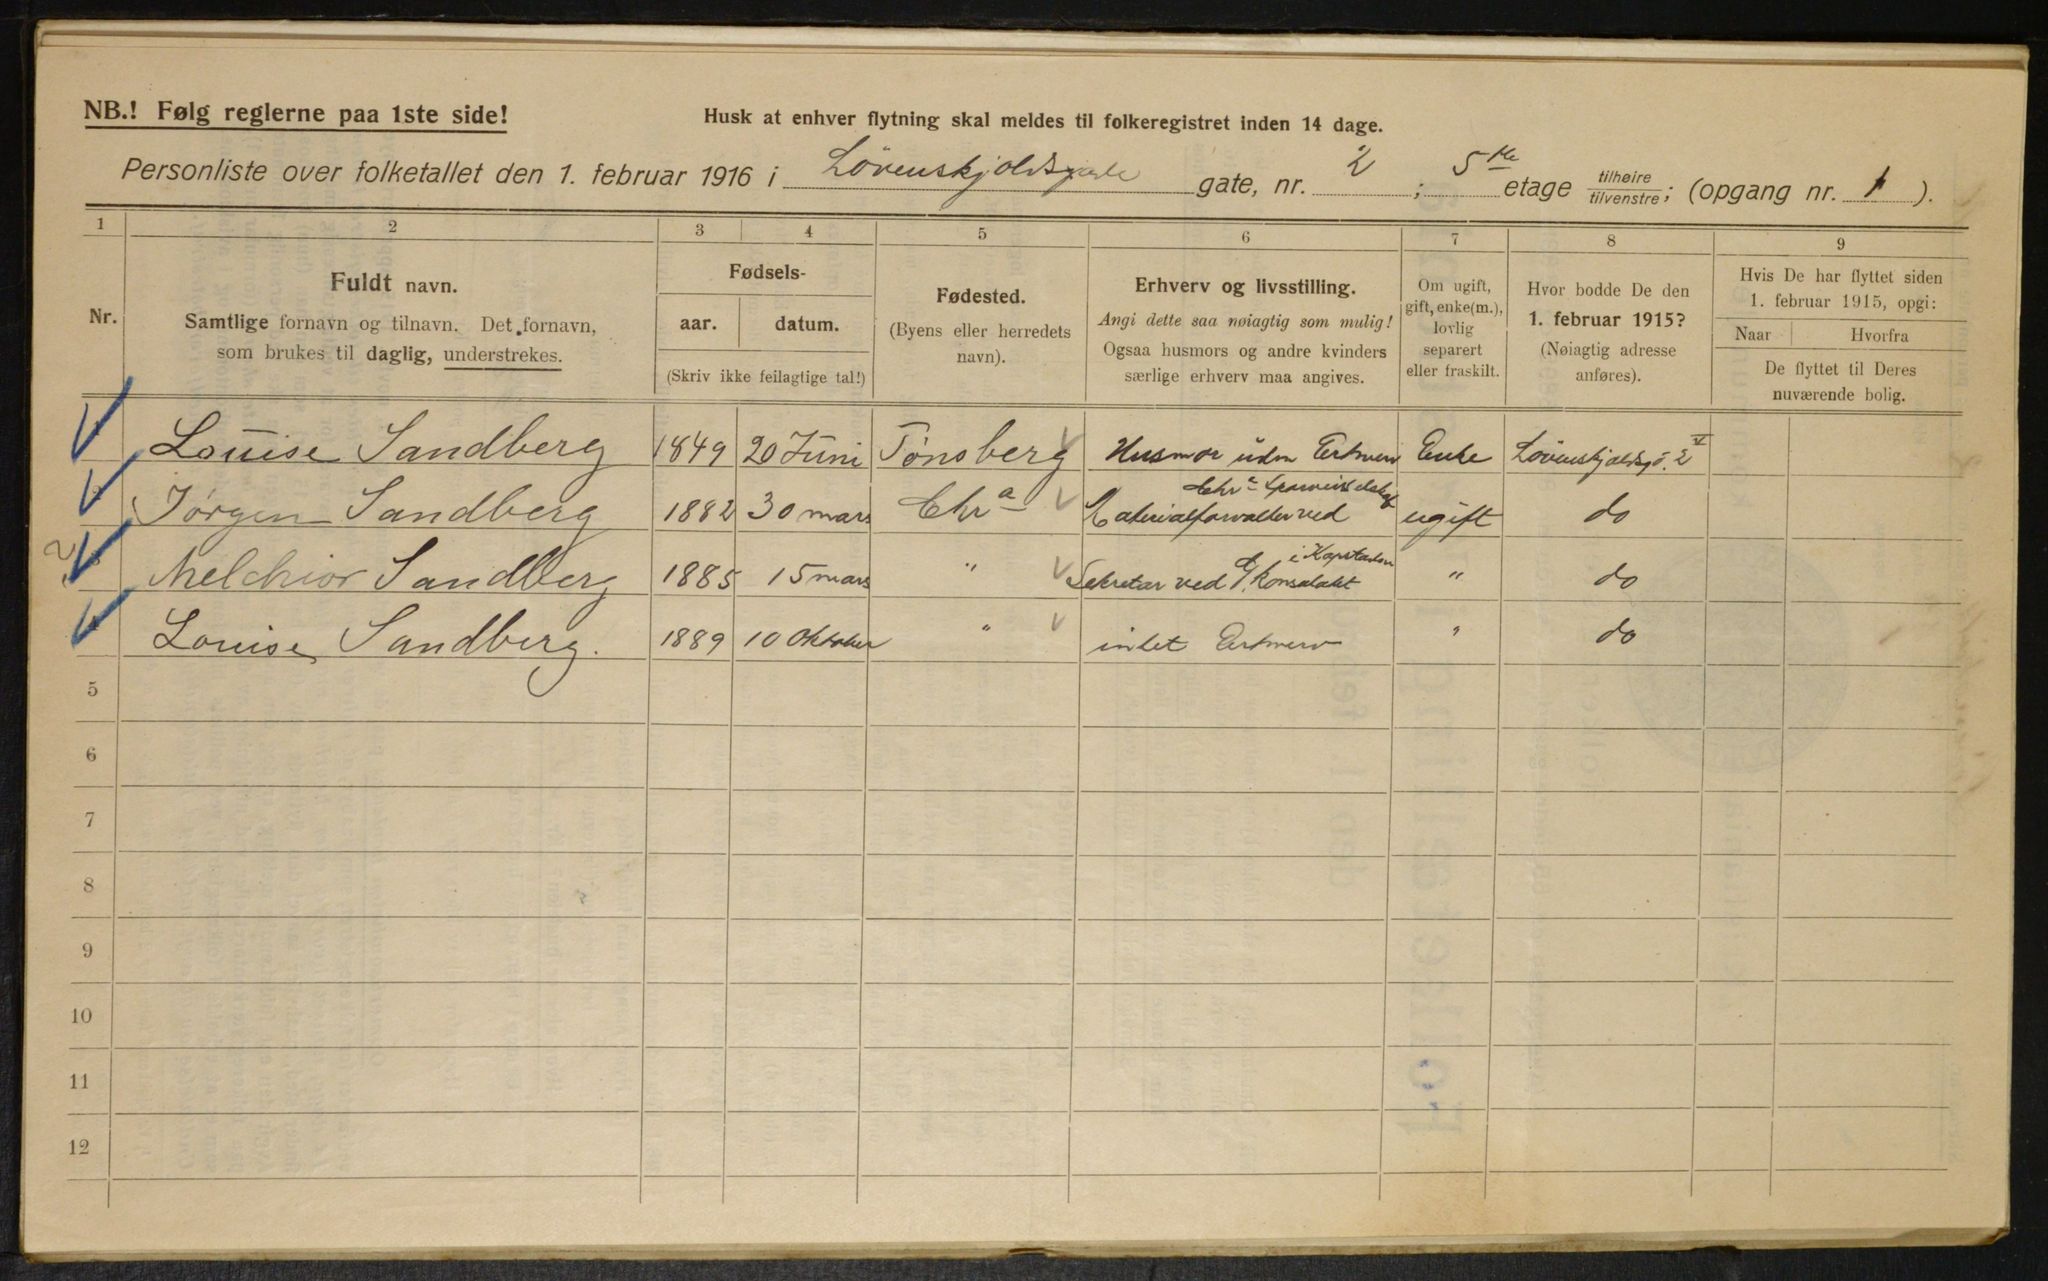 NB.! Følg reglerne paa 1ste side!
Husk at enhver flytning skal meldes til folkeregistret inden 14 dage.
Personliste over folketallet den 1. februar 1916 i Lövenskjoldsgade gate, nr. 2; 5te etage tilhøire/tilvenstre; (opgang nr. 1).
1 2 3 4 5 6 7 8 9
Nr.
Fuldt navn.
Samtlige fornavn og tilnavn. Det fornavn,
som brukes til daglig, understrekes.
Fødsels-
aar. datum.
(Skriv ikke feilagtige tal!)
Fødested.
(Byens eller herredets
navn).
Erhverv og livsstilling.
Angi dette saa nøiagtig som mulig!
Ogsaa husmors og andre kvinders
særlige erhverv maa angives.
Om ugift,
gift, enke(m.),
lovlig
separert
eller fraskilt.
Hvor bodde De den
1. februar 1915?
(Nøiagtig adresse
anføres).
Hvis De har flyttet siden
1. februar 1915, opgi:
Naar Hvorfra
De flyttet til Deres
nuværende bolig.
Louise Sandberg 1849 20 Juni Tønsberg Husmor uden Erhverv Enke Lövenskjoldsg. 2 V
Jørgen Sandberg 1882 30 mars Chra Materialforvalter ved Chra Sporveisselskab ugift do
Melchior Sandberg 1885 15 mars " Sekretær ved G. Konsulatet i Kapstaden " do
Louise Sandberg. 1889 10 Oktober " intet Erhverv " do
5
6
7
8
9
10
11
12